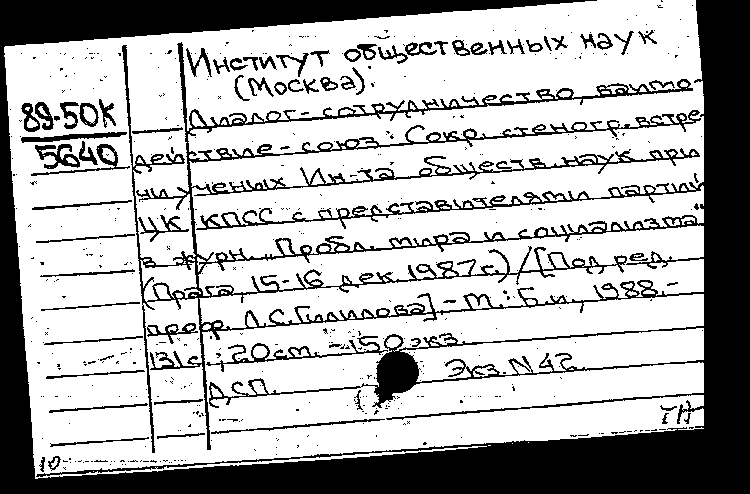 Институт общественных наук
(Москва).
89-50К
Диалог - сотрудничество, взаимо-
5640
действие - союз : Сокр. стеногр. встре
чи ученых Ин-та обществ. наук при
ЦК КПСС с представителями партий
в журн. „Пробл. мира и социализма"
(Прага, 15-16 дек. 1987 г.) / [Под ред.
проф. Л.С. Гилилова]. - М. : Б.и., 1988. -
131 с. ; 20 ст. - 150 экз.
Экз. N 42.
ДСП.
ТН
10